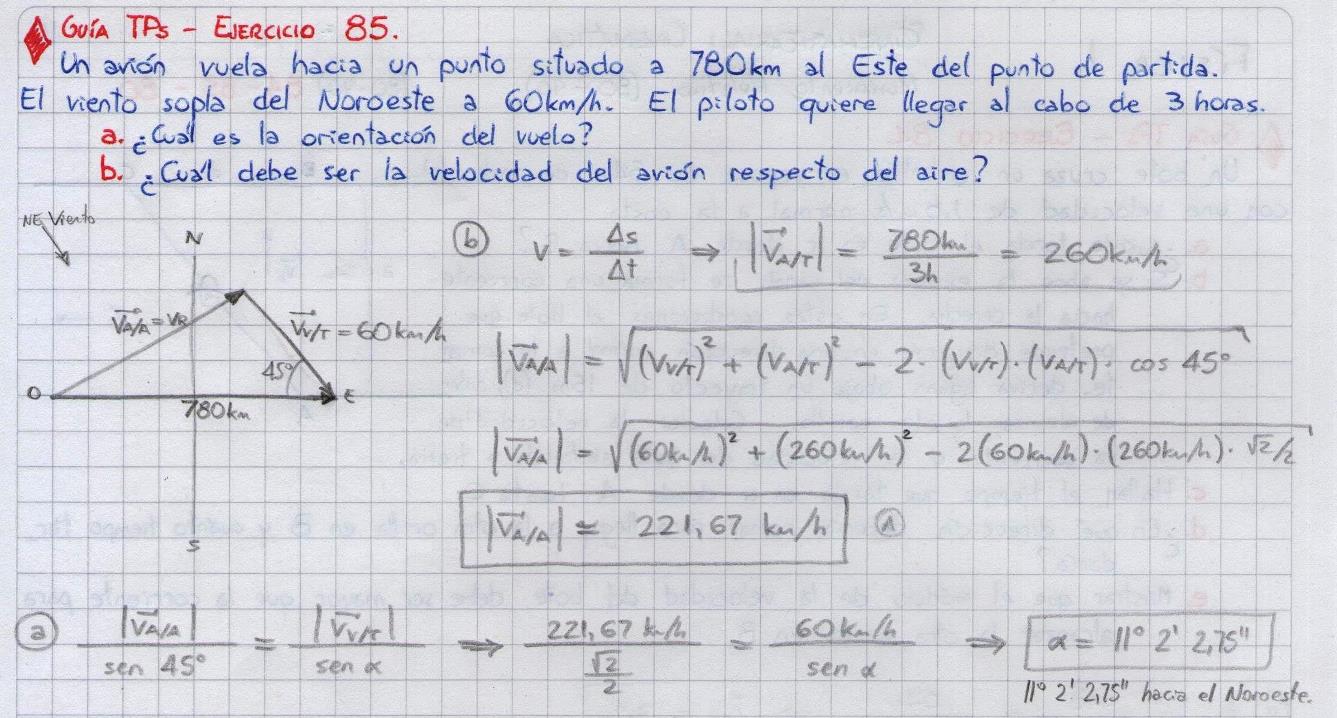 GUÍA TPs - EJERCICIO 85.
Un avión vuela hacia un punto situado a 780km al Este del punto de partida.
El viento sopla del Noroeste a 60km/h. El piloto quiere llegar al cabo de 3 horas.
a. ¿Cuál es la orientación del vuelo?
b. ¿Cuál debe ser la velocidad del avión respecto del aire?
NE Viento
N
V⃗A/A = VR
V⃗V/T = 60km/h
45°
O
E
780km
S
ⓑ V = Δs/Δt ⇒ |V⃗A/T| = 780km/3h = 260km/h
|V⃗A/A| = √((VV/T)² + (VA/T)² - 2·(VV/T)·(VA/T)· cos 45°)
|V⃗A/A| = √((60km/h)² + (260km/h)² - 2(60km/h)·(260km/h)· √2/2)
|V⃗A/A| ≃ 221,67 km/h Ⓐ
ⓐ |V⃗A/A|/sen 45° = |V⃗V/T|/sen α ⇒ 221,67 km/h/(√2/2) = 60km/h/sen α ⇒ α = 11° 2' 2,75"
11° 2' 2,75" hacia el Noroeste.